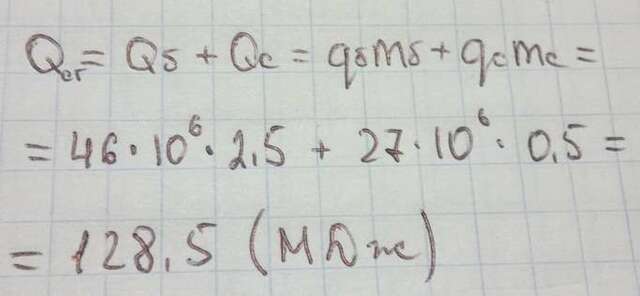 Qсг = Qб + Qс = qбmб + qсmс =
= 46·10⁶·2,5 + 27·10⁶·0,5 =
= 128,5 (МДж)